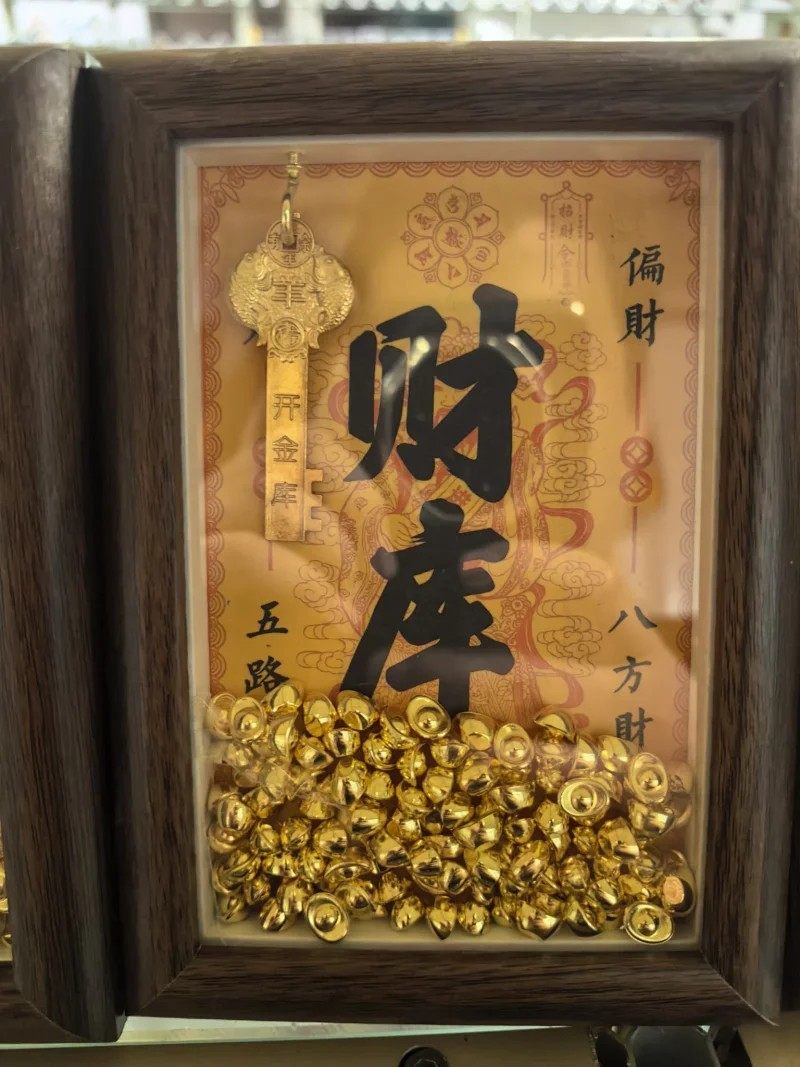 财库
偏財
八方財
五路
羊
开金库
招財